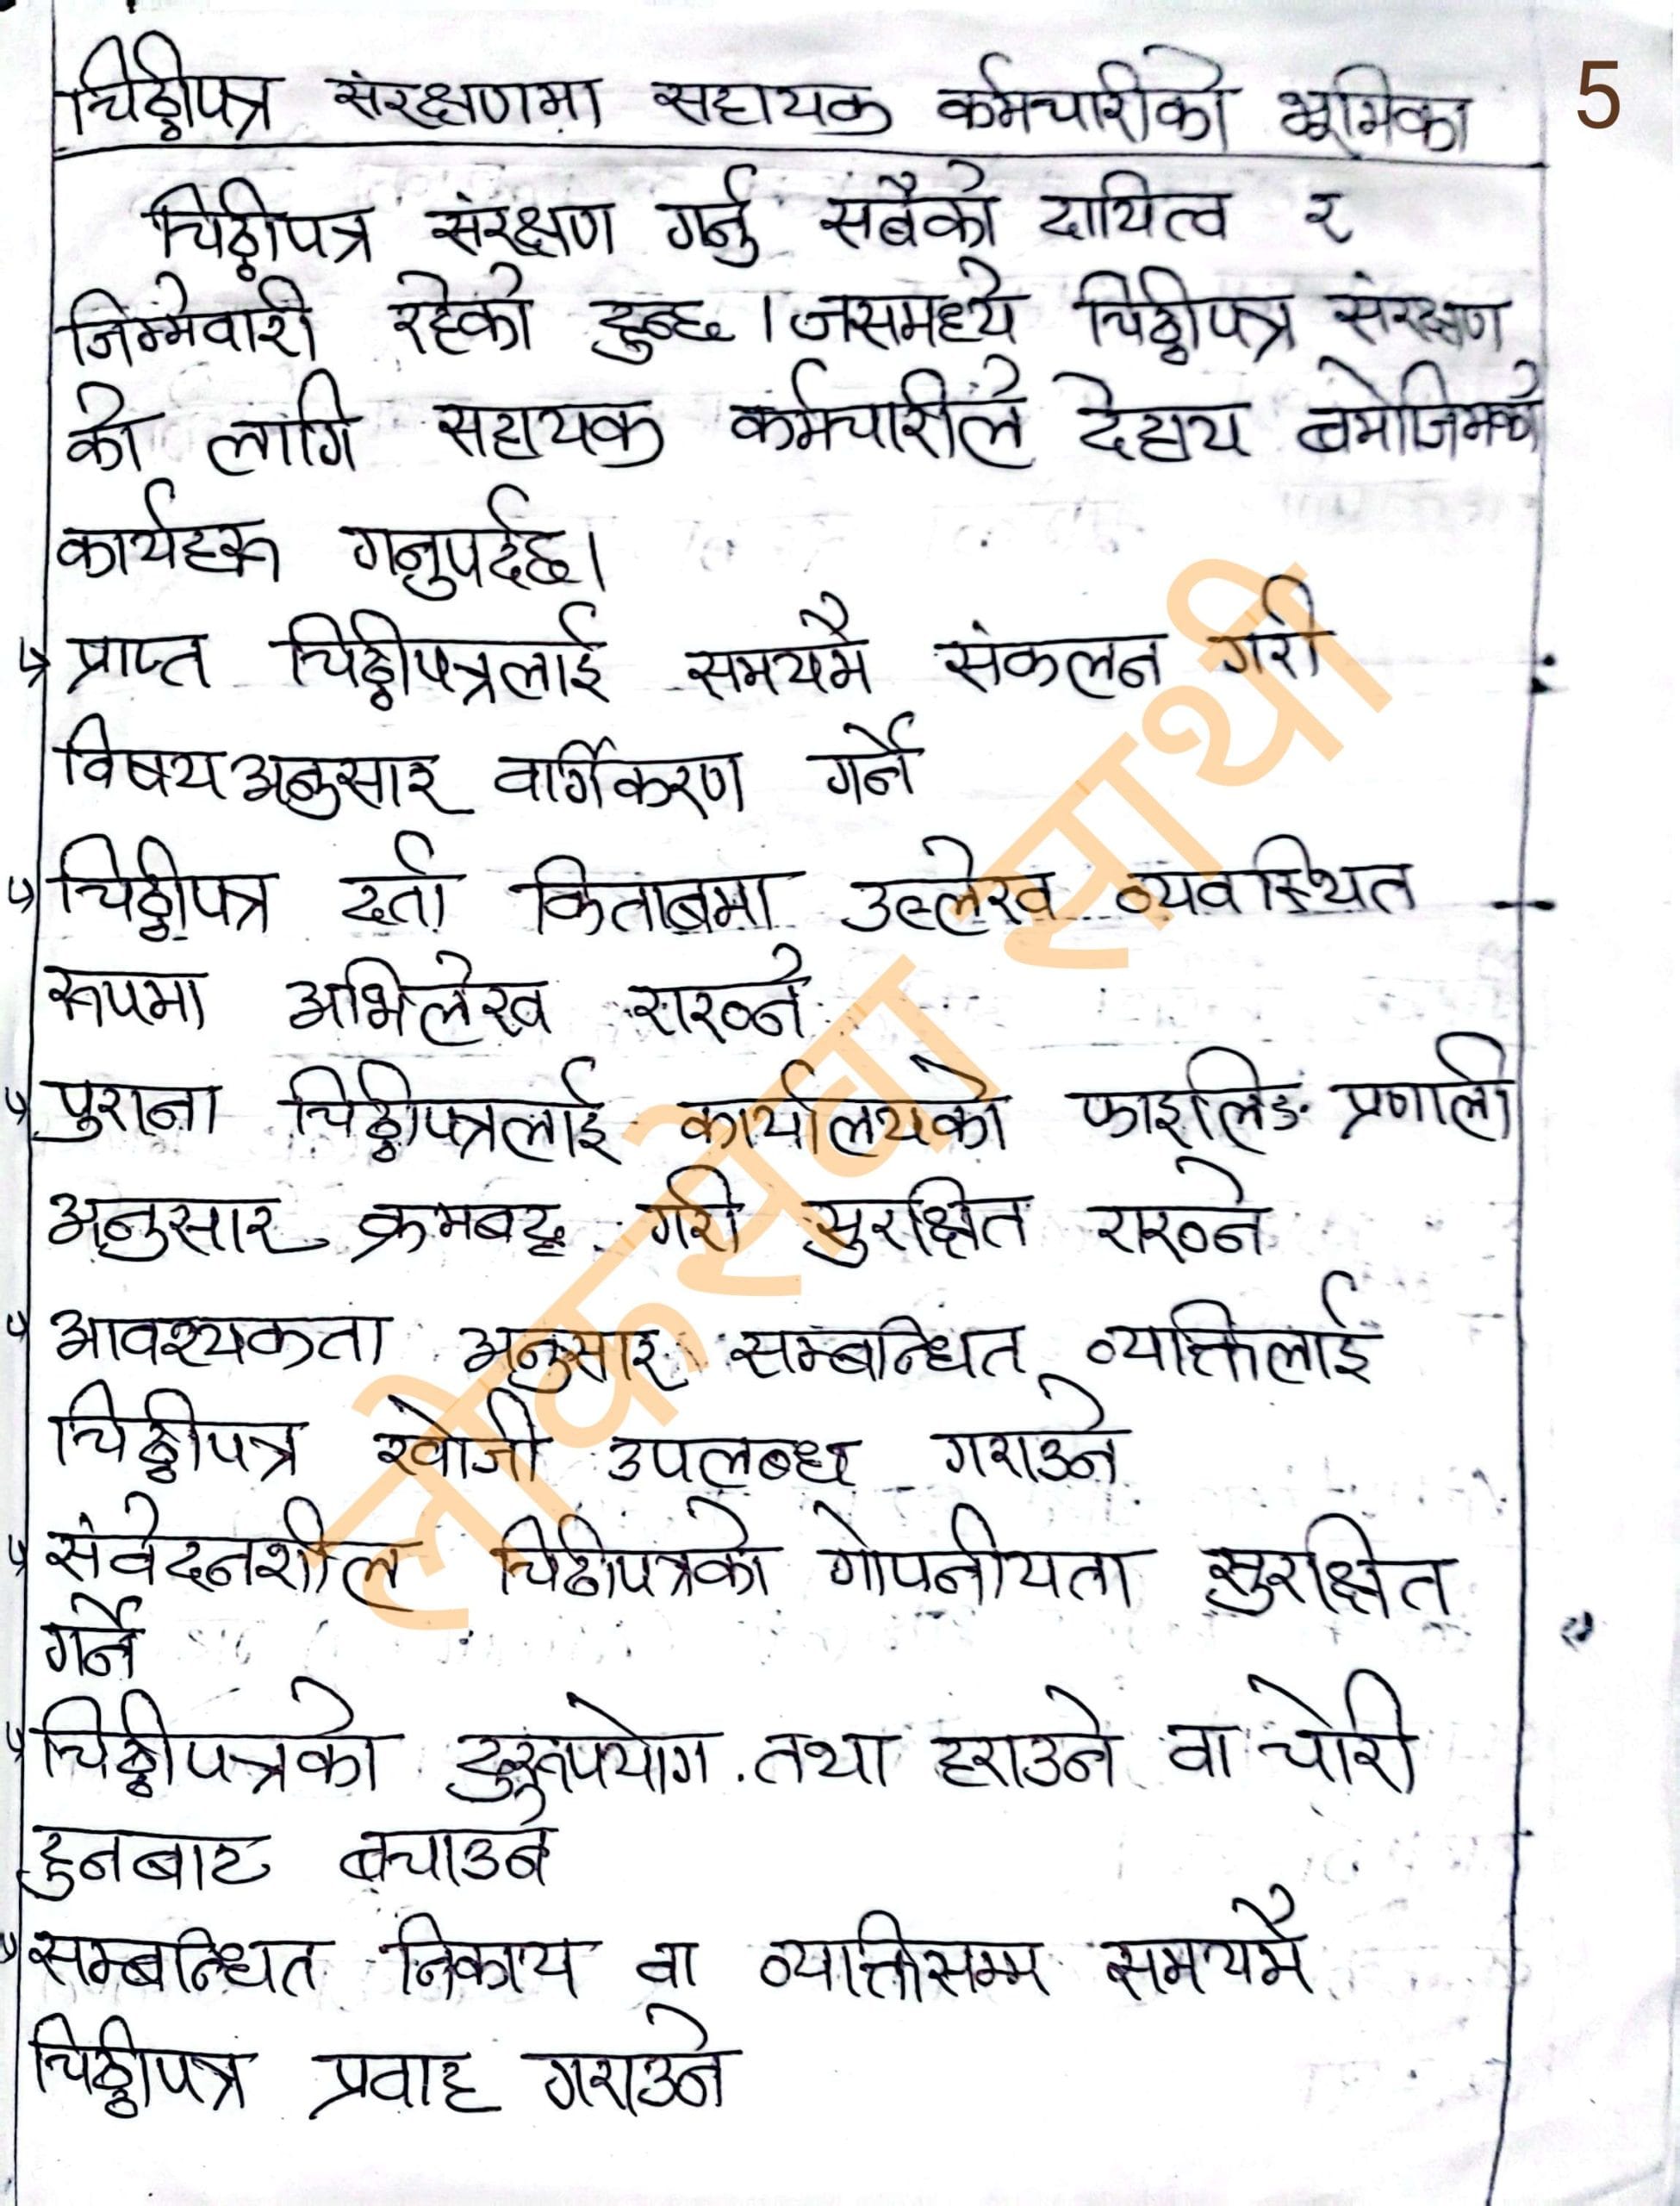 चिठ्ठीपत्र संरक्षणमा सहायक कर्मचारीको भूमिका
5
चिठ्ठीपत्र संरक्षण गर्नु सबैको दायित्व र
जिम्मेवारी रहेको हुन्छ । जसमध्ये चिठ्ठीपत्र संरक्षण
को लागि सहायक कर्मचारीले देहाय बमोजिमको
कार्यहरू गनुपर्दछ।
प्राप्त चिठ्ठीपत्रलाई समयमै संकलन गरी
विषय अनुसार वर्गिकरण गर्ने
चिठ्ठीपत्र दर्ता किताबमा उल्लेख व्यवस्थित
रूपमा अभिलेख राख्ने
पुराना चिठ्ठीपत्रलाई कार्यालयको फाइलिङ प्रणाली
अनुसार क्रमबद्ध गरी सुरक्षित राख्ने
आवश्यकता अनुसार सम्बन्धित व्यक्तिलाई
चिठ्ठीपत्र खोजी उपलब्ध गराउने
संवेदनशील चिठीपत्रको गोपनीयता सुरक्षित
गर्ने
चिठ्ठीपत्रको दुरुपयोग तथा हराउने वा चोरी
हुनबाट बचाउने
सम्बन्धित निकाय वा व्यक्तिसम्म समयमै
चिठ्ठीपत्र प्रवाह गराउने
लोकसेवा साथी